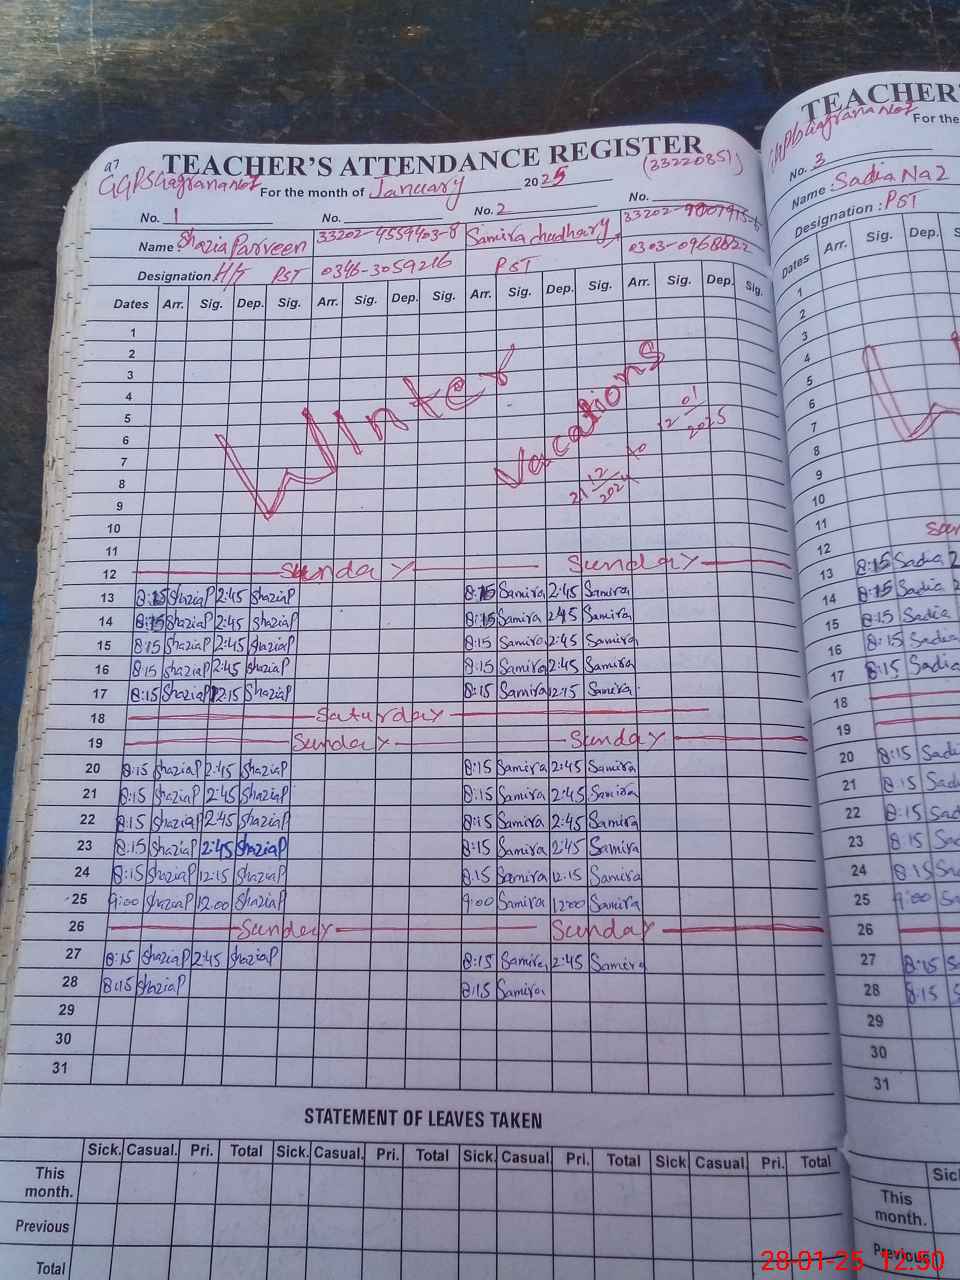 a7 TEACHER'S ATTENDANCE REGISTER (33220851)
For the month of January 2025
No. 1 No. No. 2 No.
Name Shazia Parveen 33202-4559403-8 Samira chudhary
Designation H/T PST 0346-3059216 PST 0303-0968822
Dates Arr. Sig. Dep. Sig. Arr. Sig. Dep. Sig. Arr. Sig. Dep. Sig. Arr. Sig. Dep. Sig.
1
2
3
4
5
6
7
8
9
10
11
Winter Vacations
21 12/2024 to 12 01/2025
12 Sunday Sunday
13 8:15 ShaziaP 2:45 ShaziaP 8:15 Samira 2:45 Samira
14 8:15 ShaziaP 2:45 ShaziaP 8:15 Samira 2:45 Samira
15 8:15 ShaziaP 2:45 ShaziaP 8:15 Samira 2:45 Samira
16 8:15 ShaziaP 2:45 ShaziaP 8:15 Samira 2:45 Samira
17 8:15 ShaziaP 12:15 ShaziaP 8:15 Samira 12:15 Samira
18 Saturday
19 Sunday Sunday
20 8:15 ShaziaP 2:45 ShaziaP 8:15 Samira 2:45 Samira
21 8:15 ShaziaP 2:45 ShaziaP 8:15 Samira 2:45 Samira
22 8:15 ShaziaP 2:45 ShaziaP 8:15 Samira 2:45 Samira
23 8:15 ShaziaP 2:45 ShaziaP 8:15 Samira 2:45 Samira
24 8:15 ShaziaP 12:15 ShaziaP 8:15 Samira 12:15 Samira
25 9:00 ShaziaP 12:00 ShaziaP 9:00 Samira 12:00 Samira
26 Sunday Sunday
27 8:15 ShaziaP 2:45 ShaziaP 8:15 Samira 2:45 Samira
28 8:15 ShaziaP 8:15 Samira
29
30
31
STATEMENT OF LEAVES TAKEN
Sick. Casual. Pri. Total Sick. Casual. Pri. Total Sick. Casual. Pri. Total Sick Casual. Pri. Total
This
month.
Previous
Total
TEACHER'
For the
No. 3
Name : Sadia Naz
Designation : PST
Dates Arr. Sig. Dep. S
1
2
3
4
5
6
7
8
9
10
11
12 Sun
13 8:15 Sadia
14 8:15 Sadia
15 8:15 Sadia
16 8:15 Sadia
17 8:15 Sadia
18
19
20 8:15 Sadi
21 8:15 Sadi
22 8:15 Sadi
23 8:15 Sad
24 8:15 Sad
25 9:00 Sa
26
27 8:15 Sa
28 8:15 S
29
30
31
Sic
This
month.
Previous
28-01-25 12:50